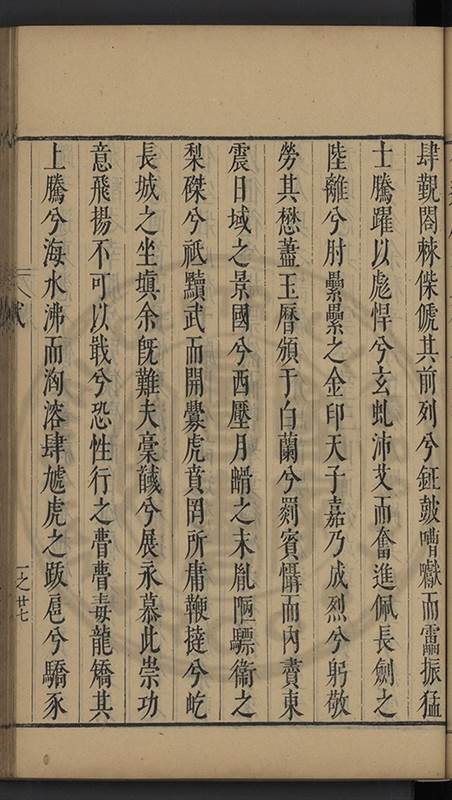 肆覲閤棘傑俿其前列兮鉦皷嘈㘔而靁振猛
士騰躍以彪悍兮玄虬沛艾而奮進佩長劍之
陸離兮肘纍纍之金印天子嘉乃成烈兮躬敬
勞其懋藎玉曆頒于白蘭兮罽賓懾而內賮東
震日域之景國兮西壓月㟙之末胤陋驃衞之
梨磔兮祇黷武而開釁虎賁罔所庸鞭撻兮屹
長城之坐塡余旣難夫槖韔兮展永慕此崇功
意飛揚不可以戢兮恐性行之瞢瞢毒龍矯其
上騰兮海水沸而洶溶肆虓虎之䟦扈兮驕豕
賦
一之廿七